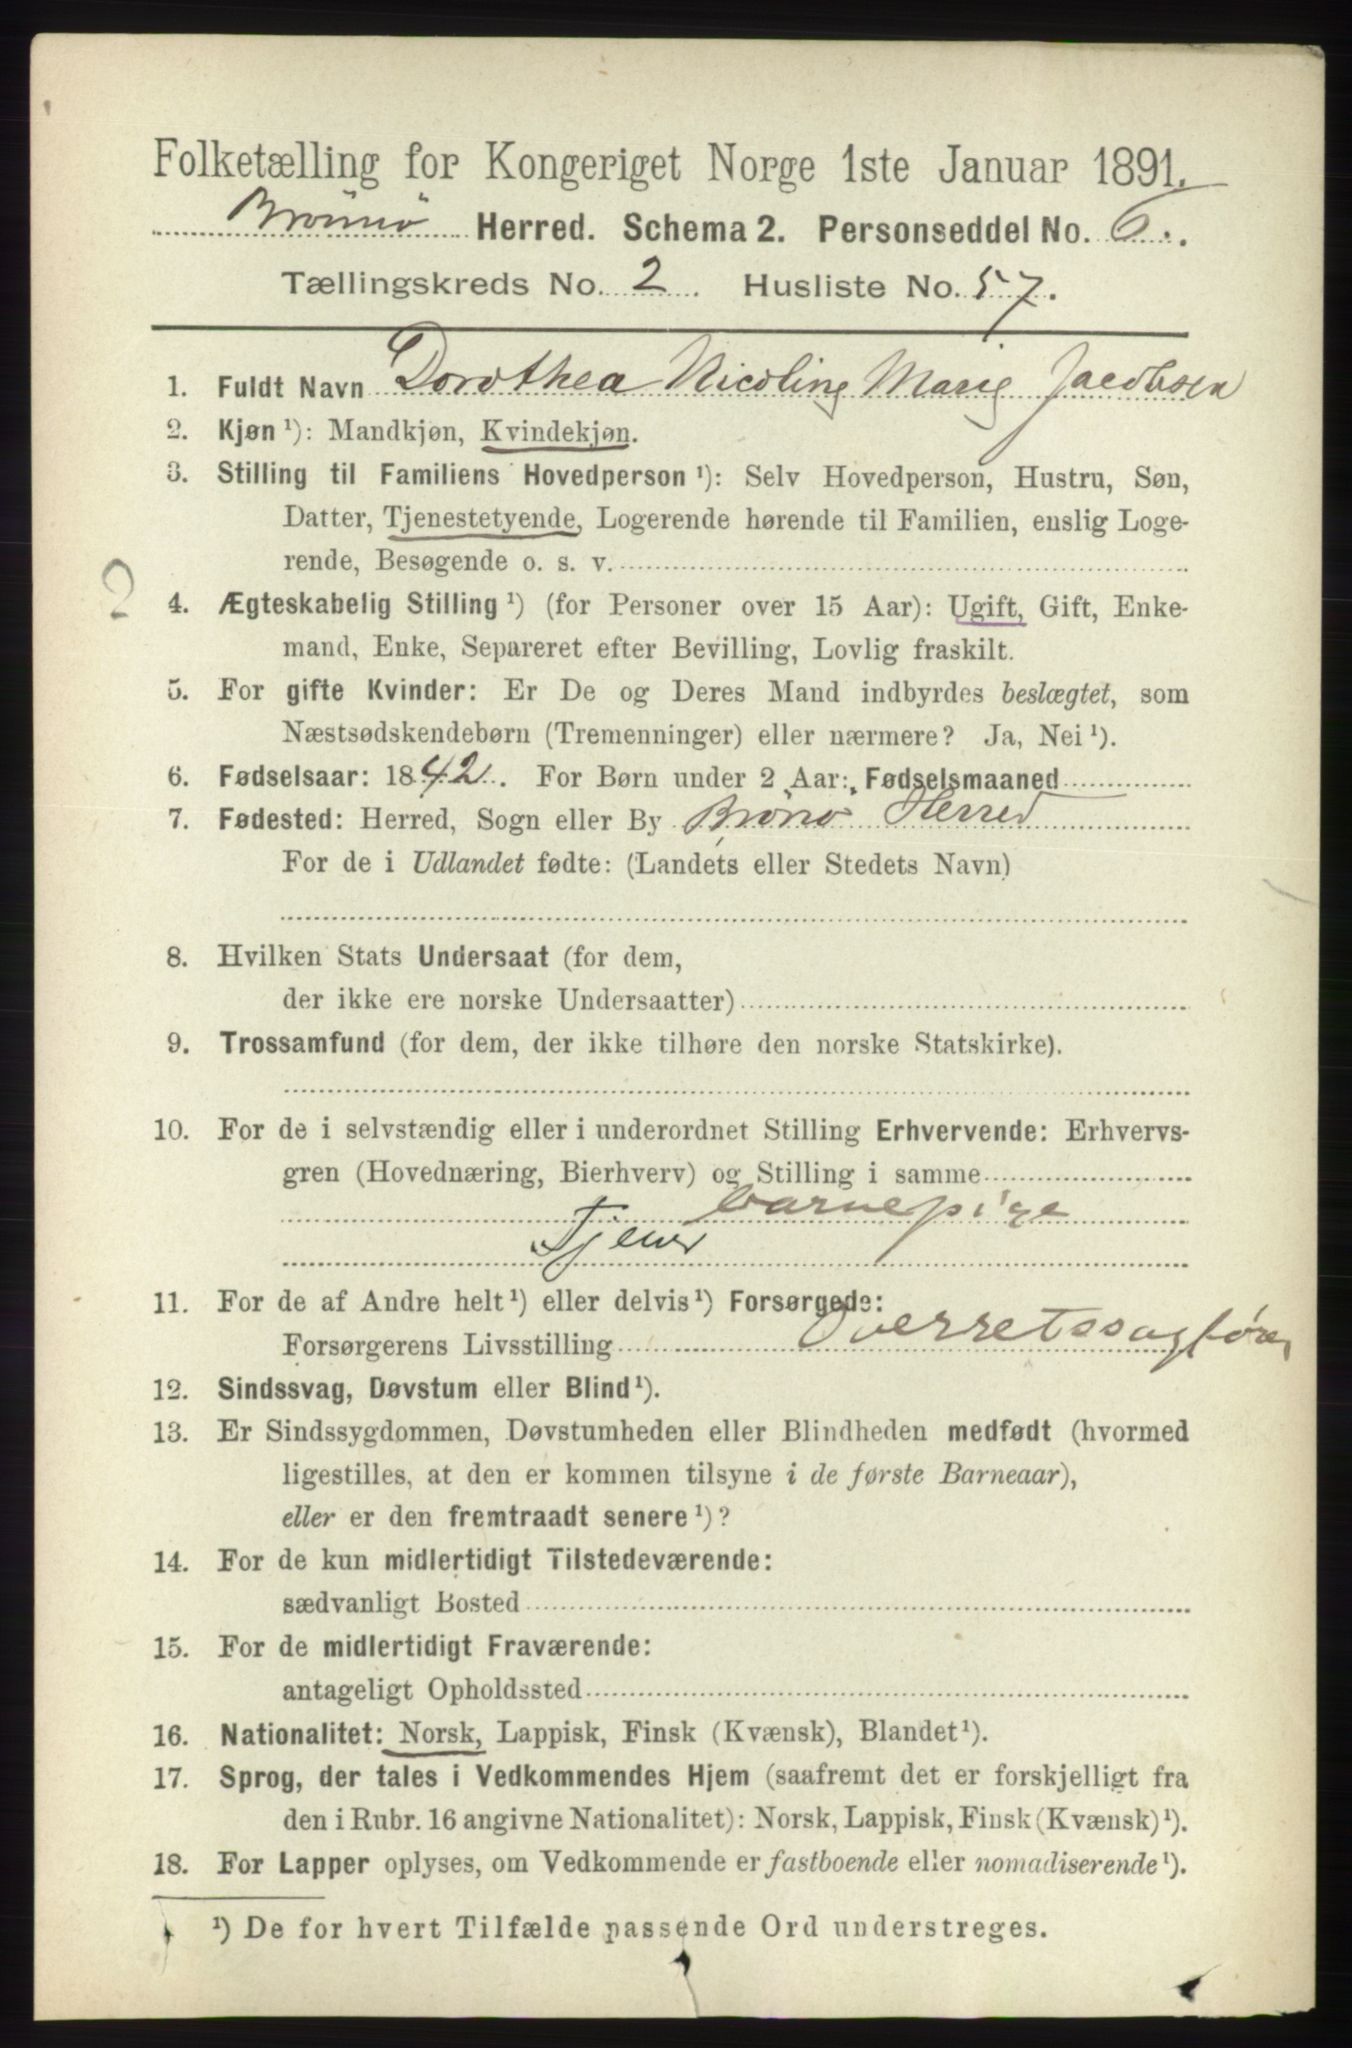 Folketælling for Kongeriget Norge 1ste Januar 1891.
Brönnö Herred. Schema 2. Personseddel No. 6.
Tællingskreds No. 2 Husliste No. 57.
1. Fuldt Navn Dorothea Nicoline Marie Jacobsen
2. Kjøn ¹): Mandkjøn, Kvindekjøn.
3. Stilling til Familiens Hovedperson ¹): Selv Hovedperson, Hustru, Søn,
Datter, Tjenestetyende, Logerende hørende til Familien, enslig Loge-
rende, Besøgende o. s. v.
2
4. Ægteskabelig Stilling ¹) (for Personer over 15 Aar): Ugift, Gift, Enke-
mand, Enke, Separeret efter Bevilling, Lovlig fraskilt.
5. For gifte Kvinder: Er De og Deres Mand indbyrdes beslægtet, som
Næstsødskendebørn (Tremenninger) eller nærmere? Ja, Nei ¹).
6. Fødselsaar: 1842. For Børn under 2 Aar: Fødselsmaaned
7. Fødested: Herred, Sogn eller By Brönö Herred
For de i Udlandet fødte: (Landets eller Stedets Navn)
8. Hvilken Stats Undersaat (for dem,
der ikke ere norske Undersaatter)
9. Trossamfund (for dem, der ikke tilhøre den norske Statskirke).
10. For de i selvstændig eller i underordnet Stilling Erhvervende: Erhvervs-
gren (Hovednæring, Bierhverv) og Stilling i samme
barnepige
Tjener
11. For de af Andre helt ¹) eller delvis ¹) Forsørgede:
Forsørgerens Livsstilling Overretssagfører
12. Sindssvag, Døvstum eller Blind ¹).
13. Er Sindssygdommen, Døvstumheden eller Blindheden medfødt (hvormed
ligestilles, at den er kommen tilsyne i de første Barneaar),
eller er den fremtraadt senere ¹)?
14. For de kun midlertidigt Tilstedeværende:
sædvanligt Bosted
15. For de midlertidigt Fraværende:
antageligt Opholdssted
16. Nationalitet: Norsk, Lappisk, Finsk (Kvænsk), Blandet ¹).
17. Sprog, der tales i Vedkommendes Hjem (saafremt det er forskjelligt fra
den i Rubr. 16 angivne Nationalitet): Norsk, Lappisk, Finsk (Kvænsk) ¹).
18. For Lapper oplyses, om Vedkommende er fastboende eller nomadiserende ¹).
¹) De for hvert Tilfælde passende Ord understreges.